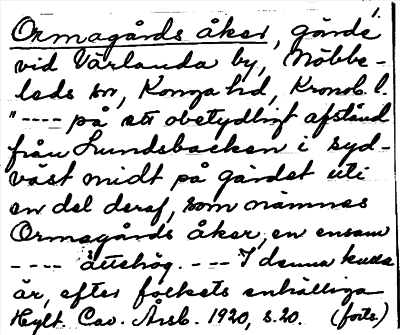 Ormagårds åker, gärde
vid Värlanda by, Nöbbe-
leds sn, Konga hd, Kronob. l.
"---- på ett obetydligt afstånd
från Lundsbacken i syd-
väst midt på gärdet uti
en del deraf, som nämnes
Ormagårds åker, en ensam
---- ättehög. ---- I denna kulle
är, efter folkets enhälliga
Hylt. Cav. Årsb. 1920, s. 20. (forts.)